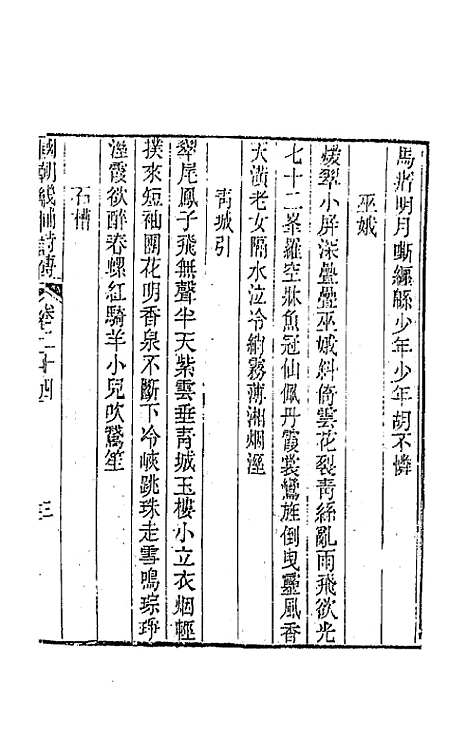 馬蹄明月嘶纒緜少年少年胡不憐
巫娥
煖翠小屏深疊疊巫娥斜倚雲花裂青絲亂雨飛欲光
七十二峯羅空牀魚冠仙佩丹霞裳鸞旌倒曳靈風香
大潢老女隔水泣冷綃霧薄湘烟溼
青城引
翠尾鳳子飛無聲半天紫雲垂青城玉樓小立衣烟輕
撲來短袖團花明香泉不斷下冷峽跳珠走雪鳴琮琤
溼霞欲醉春螺紅騎羊小兒吹鵞笙
石槽
國朝畿輔詩傳
卷二十四
三